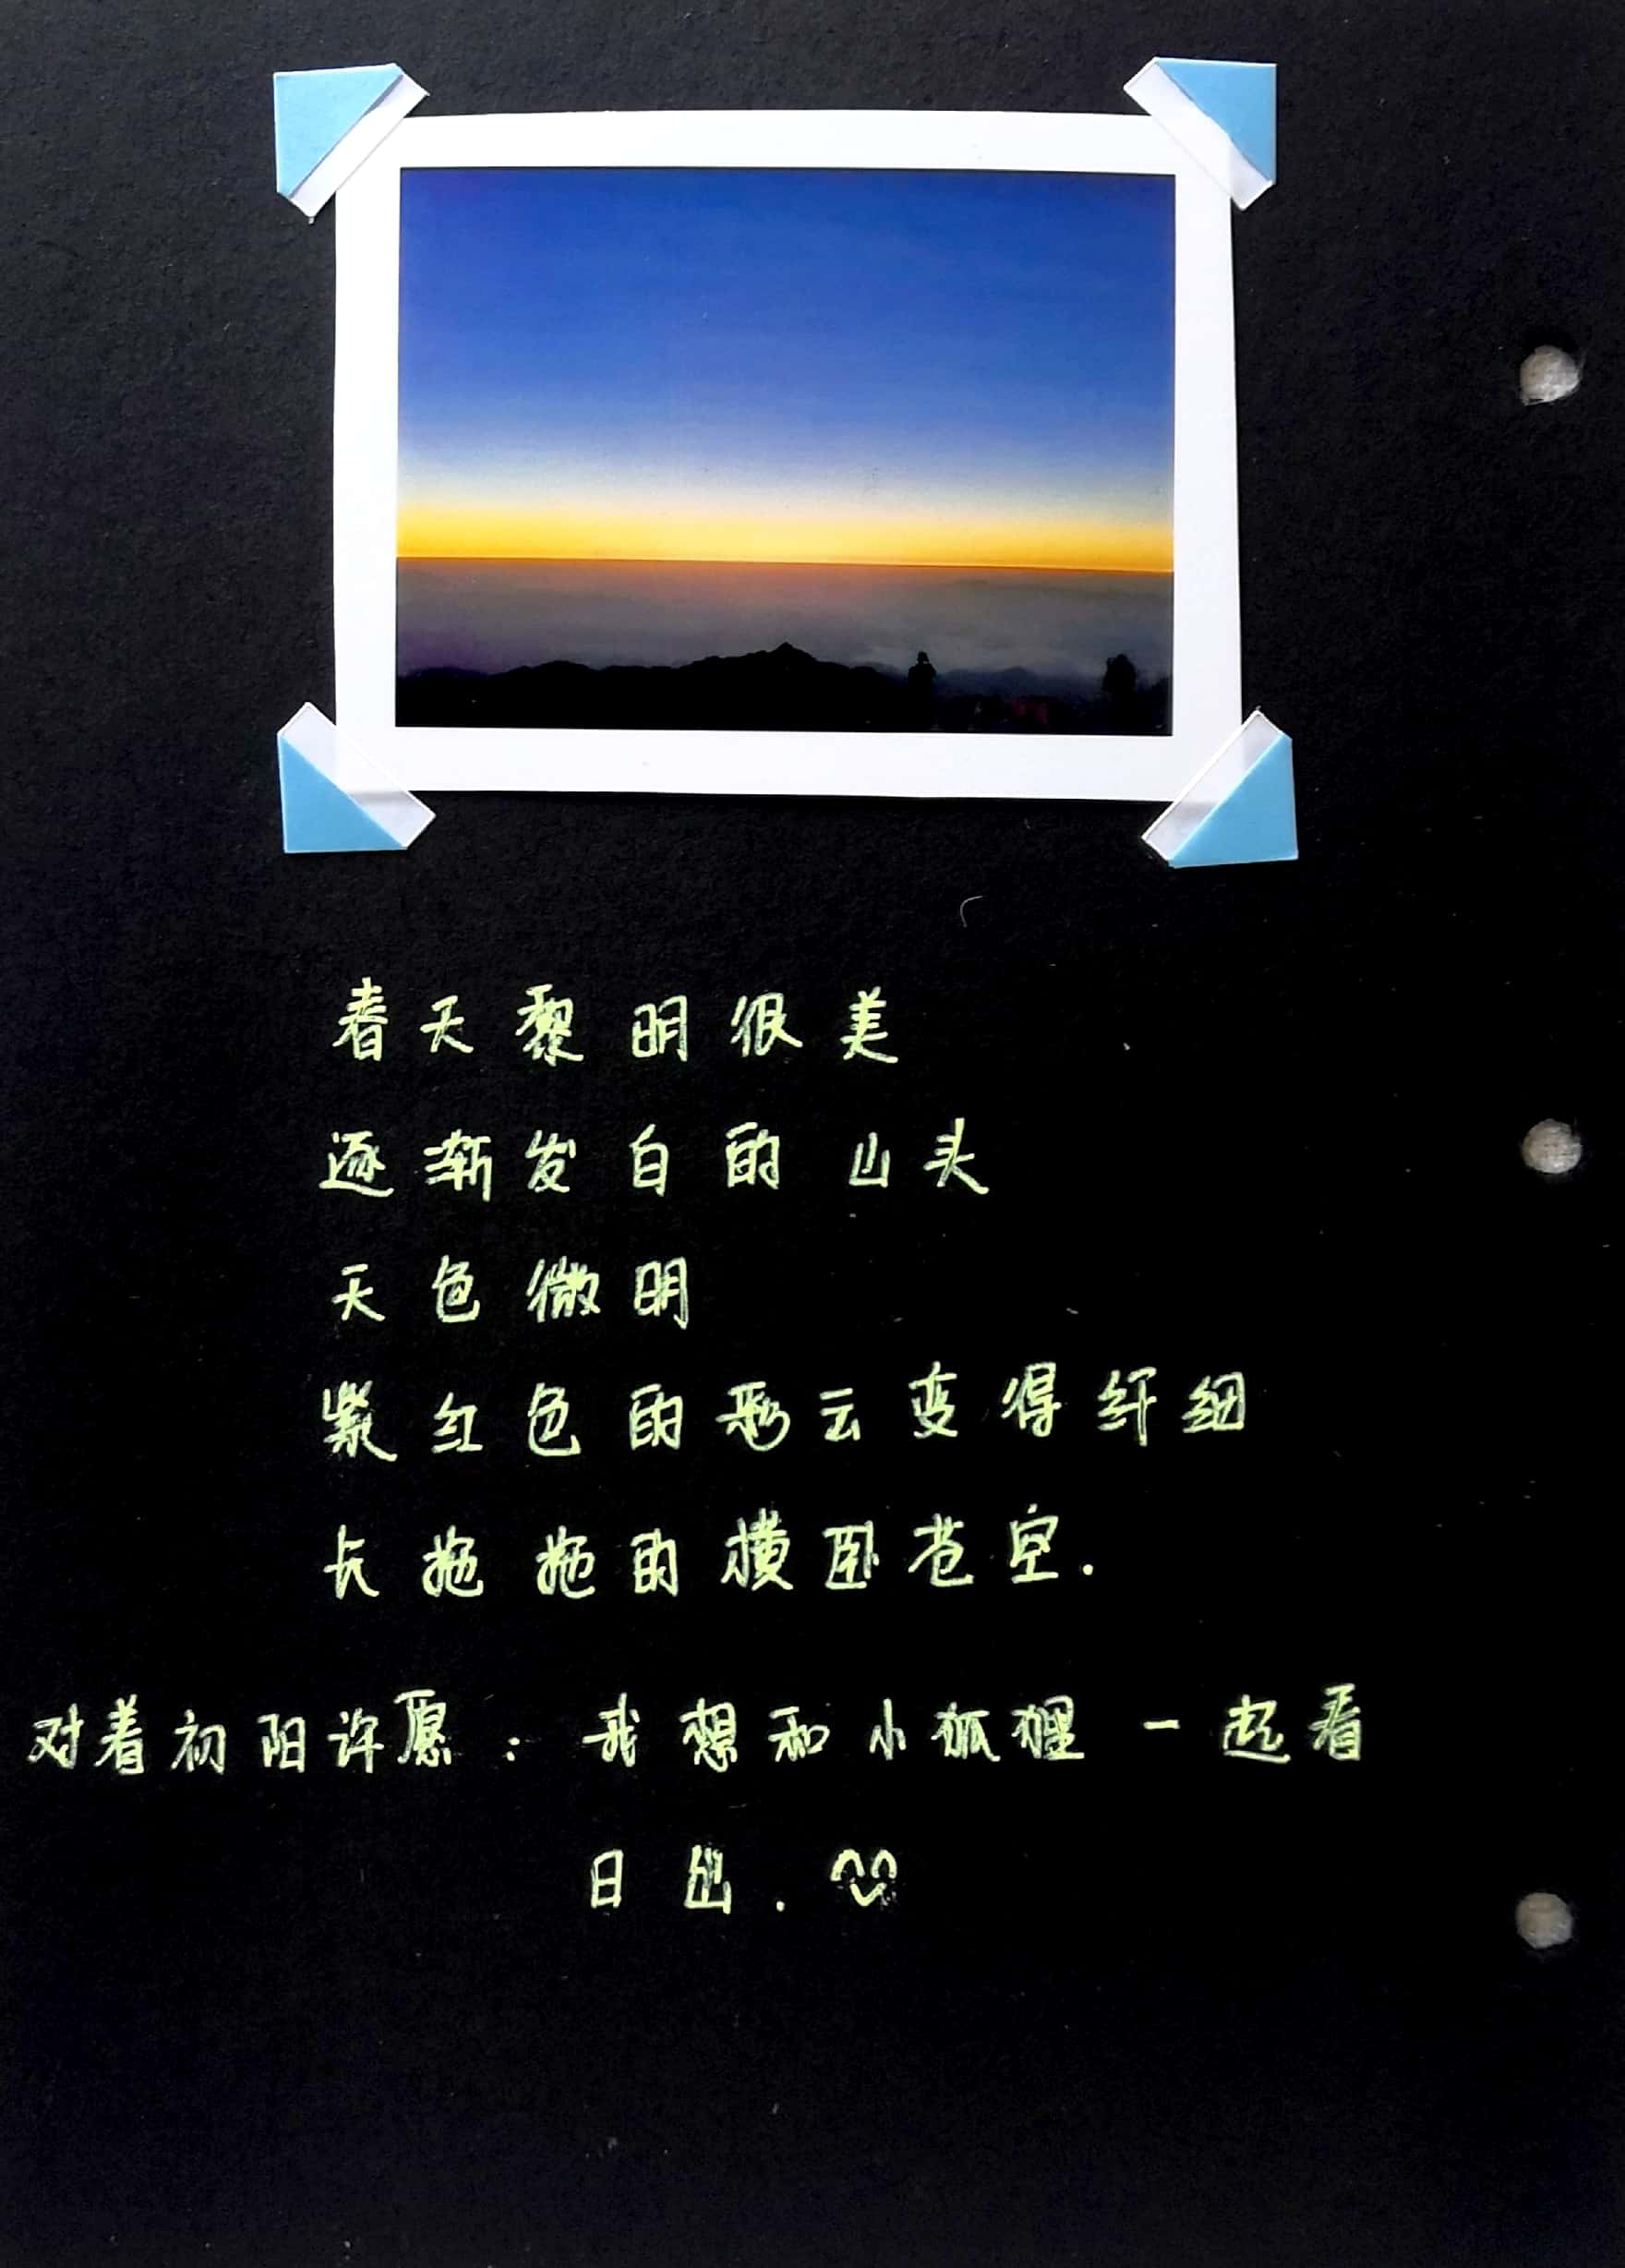 春天黎明很美
逐渐发白的山头
天色微明
紫红色的彩云变得纤细
长拖拖的横卧苍空.
对着初阳许愿：我想和小狐狸一起看
日出.